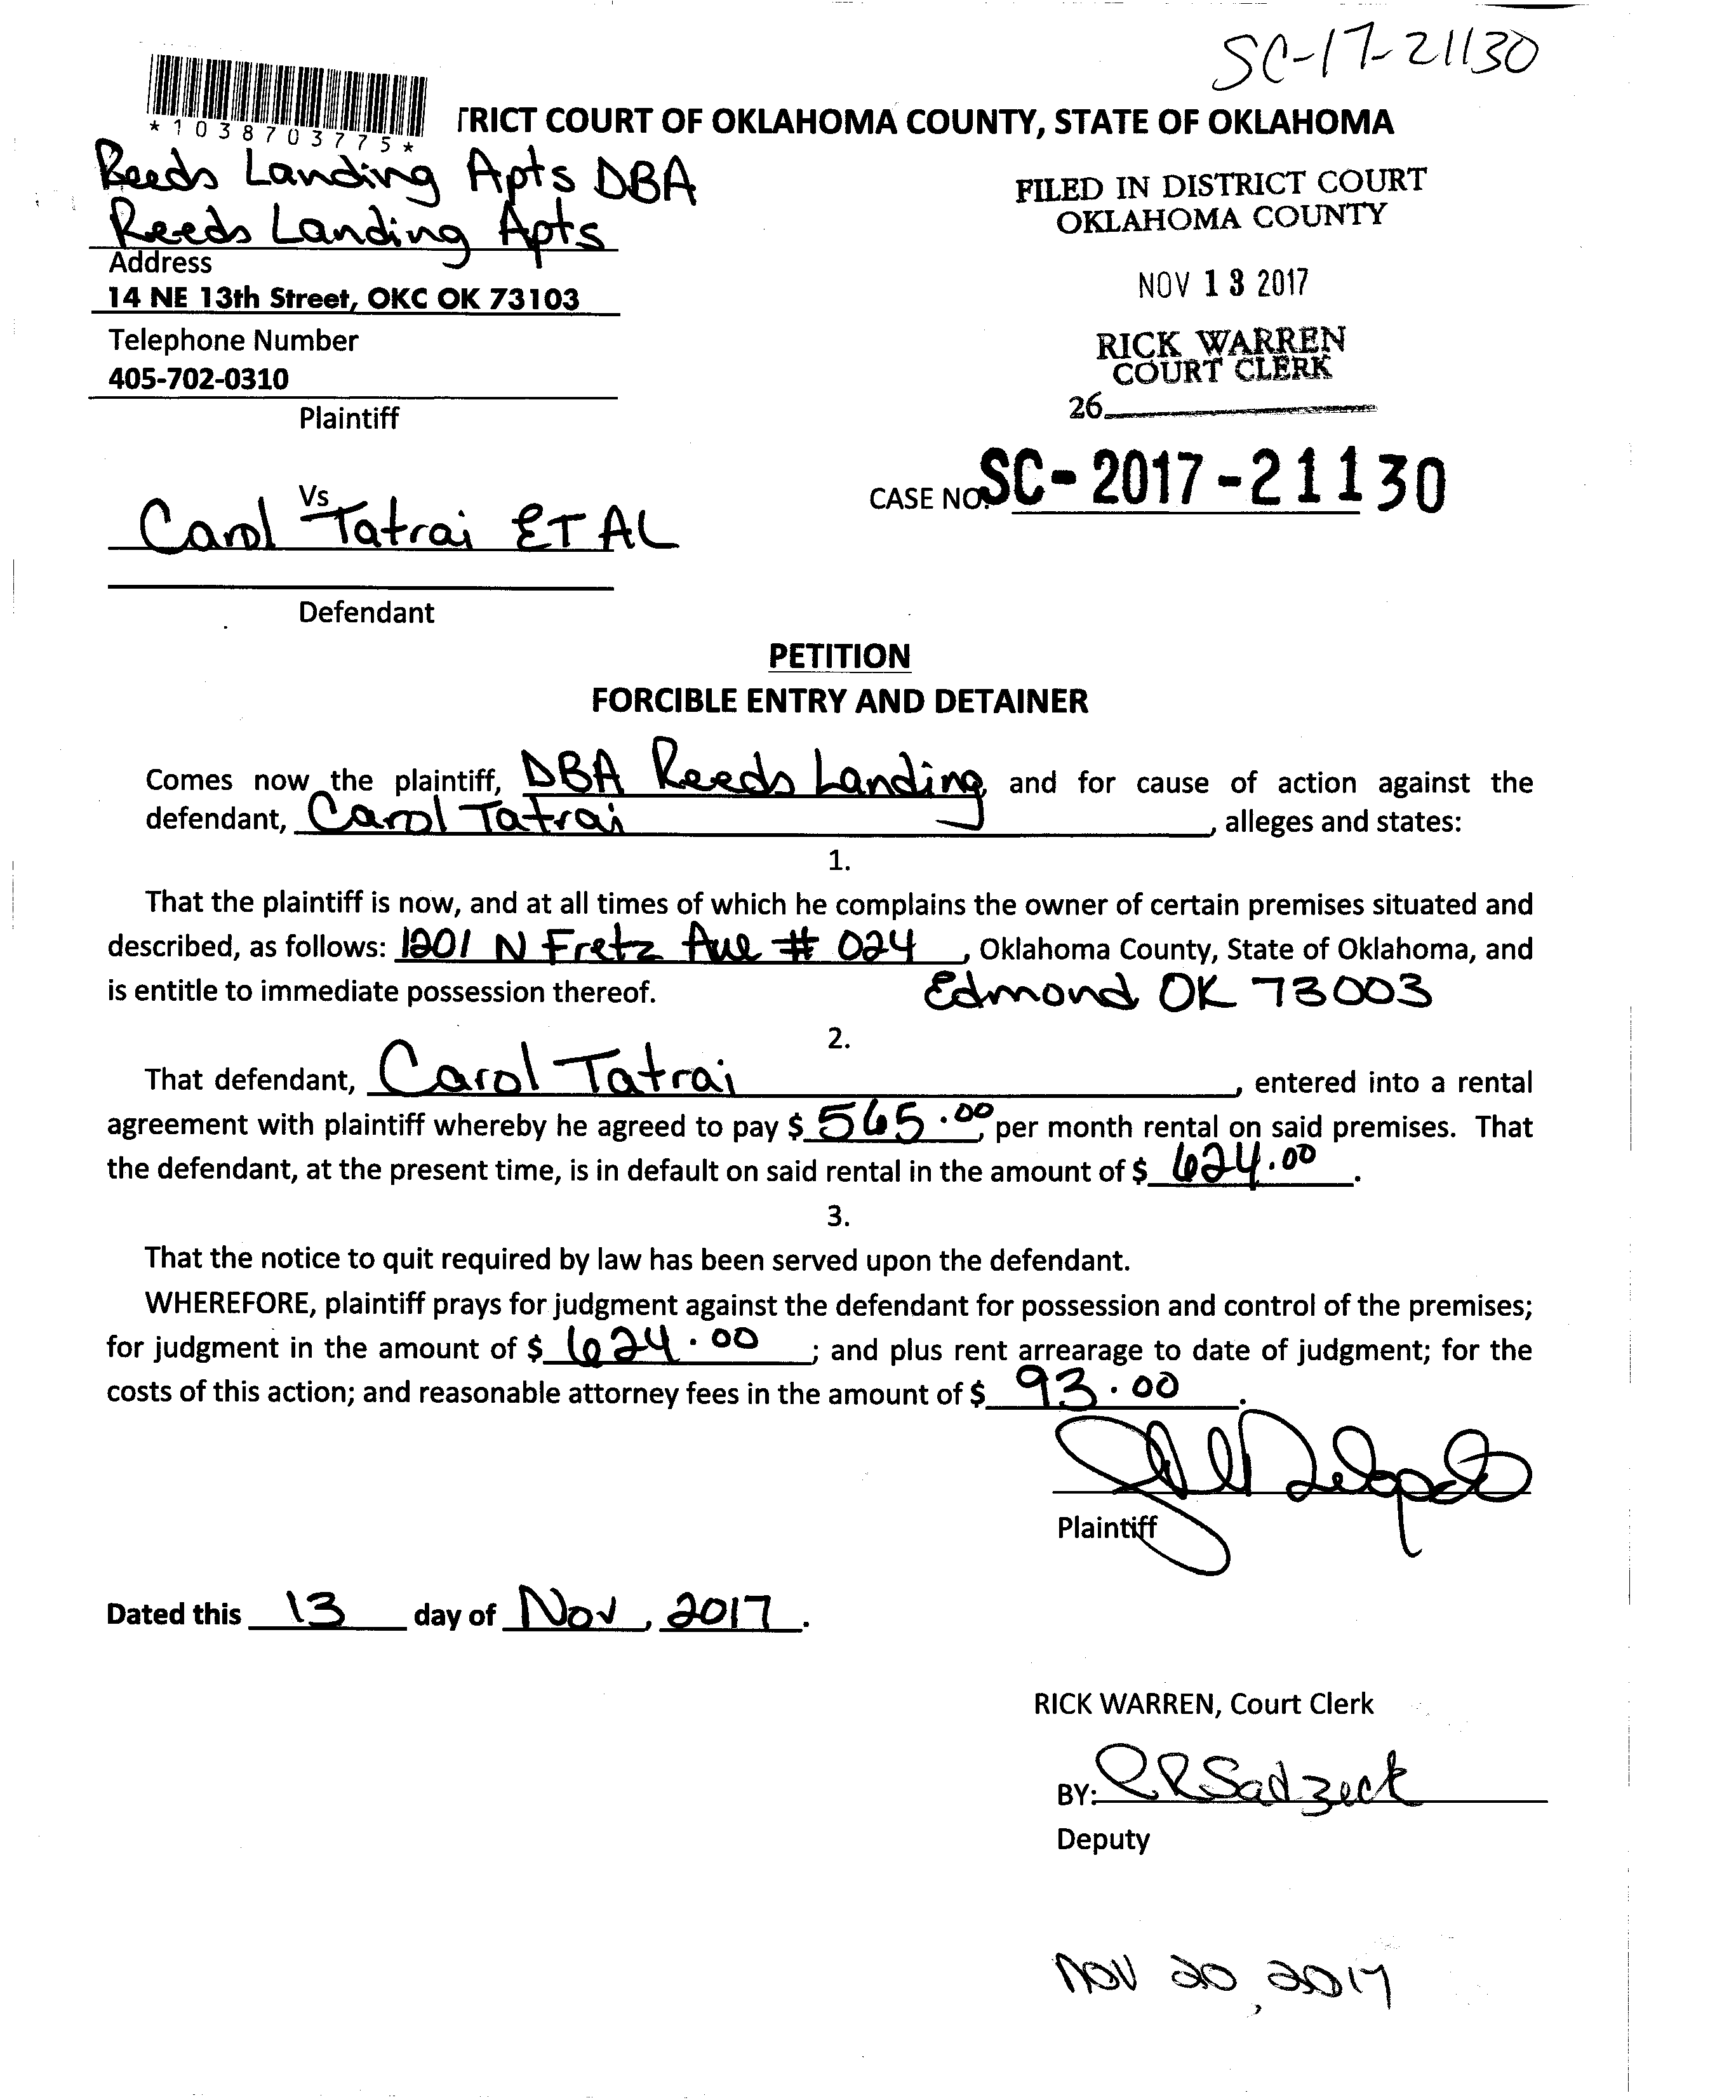 SC-17-21130
*1038703775*
TRICT COURT OF OKLAHOMA COUNTY, STATE OF OKLAHOMA
Reeds Landing Apts DBA
Reeds Landing Apts
Address
14 NE 13th Street, OKC OK 73103
Telephone Number
405-702-0310
Plaintiff
FILED IN DISTRICT COURT
OKLAHOMA COUNTY
NOV 13 2017
RICK WARREN
COURT CLERK
26
CASE NO. SC-2017-21130
Vs
Carol Tatrai ET AL
Defendant
PETITION
FORCIBLE ENTRY AND DETAINER
Comes now the plaintiff, DBA Reeds Landing, and for cause of action against the
defendant, Carol Tatrai, alleges and states:
1.
That the plaintiff is now, and at all times of which he complains the owner of certain premises situated and
described, as follows: 1201 N Fretz Ave # 024, Oklahoma County, State of Oklahoma, and
is entitle to immediate possession thereof. Edmond OK 73003
2.
That defendant, Carol Tatrai, entered into a rental
agreement with plaintiff whereby he agreed to pay $ 565.00, per month rental on said premises. That
the defendant, at the present time, is in default on said rental in the amount of $ 624.00.
3.
That the notice to quit required by law has been served upon the defendant.
WHEREFORE, plaintiff prays for judgment against the defendant for possession and control of the premises;
for judgment in the amount of $ 624.00; and plus rent arrearage to date of judgment; for the
costs of this action; and reasonable attorney fees in the amount of $ 93.00.
Delgado
Plaintiff
Dated this 13 day of Nov, 2017.
RICK WARREN, Court Clerk
BY: RRSadzeck
Deputy
Nov 20, 2017